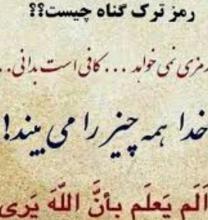 رمز ترک گناه چیست؟؟
رمزی نمی خواهد ... کافی است بدانی..
خدا همه چیز را می بیند!
أَلَم يَعلَم بِأنَّ اللّهَ يَرى